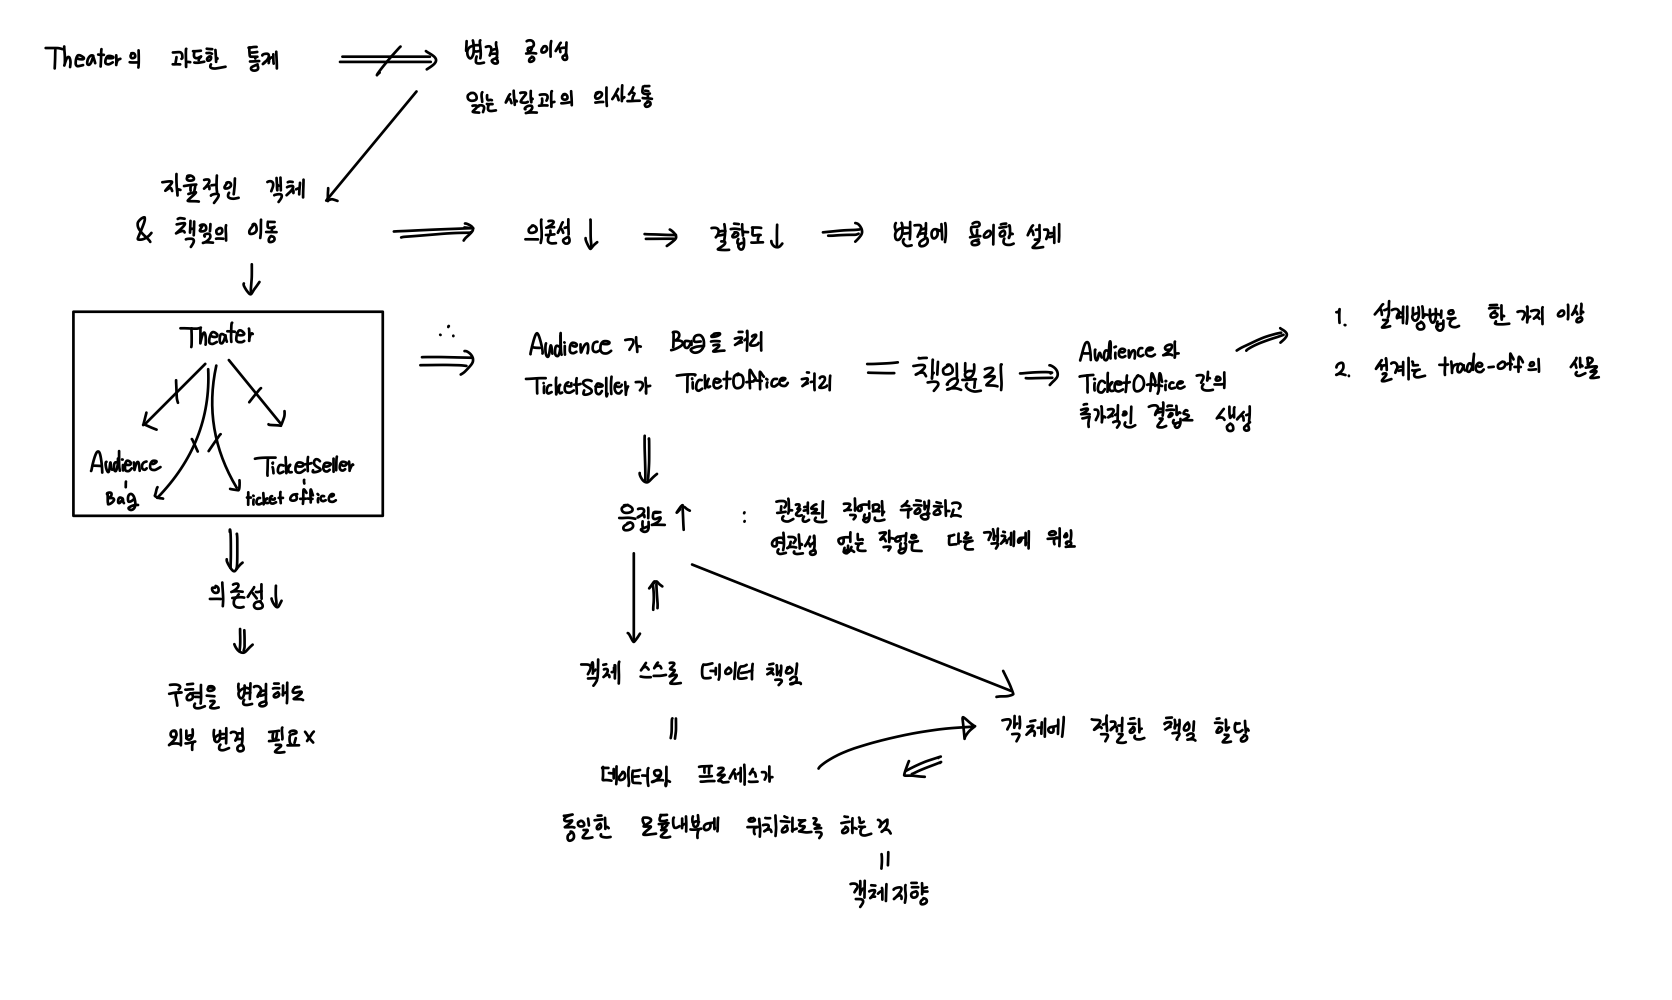 Theater의 과도한 통제
변경 용이성
읽는 사람과의 의사소통
자율적인 객체
& 책임의 이동
의존성↓
결합도↓
변경에 용이한 설계
Theater
Audience
Bag
TicketSeller
ticket office
∴
Audience가 Bag을 처리
TicketSeller가 TicketOffice 처리
= 책임분리
Audience와
TicketOffice 간의
추가적인 결합도 생성
1. 설계방법은 한 가지 이상
2. 설계는 trade-off의 산물
의존성↓
구현을 변경해도
외부 변경 필요x
응집도↑ : 관련된 작업만 수행하고
연관성 없는 작업은 다른 객체에 위임
객체 스스로 데이터 책임
=
데이터와 프로세스가
동일한 모듈내부에 위치하도록 하는 것
=
객체지향
객체에 적절한 책임 할당